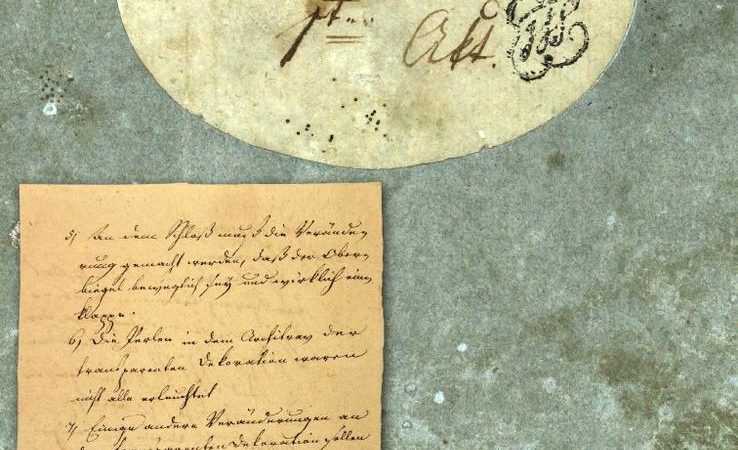 1ter
Akt.
5, An dem Schloß muß die Verände-
rung gemacht werden, daß der Ober-
biegel beweglich sey und wirklich ein-
klappe.
6, Die Perlen in dem Architrav der
transparenten Dekoration waren
nicht alle erleuchtet
7, Einige andere Veränderungen an
der transparenten Dekoration sollen